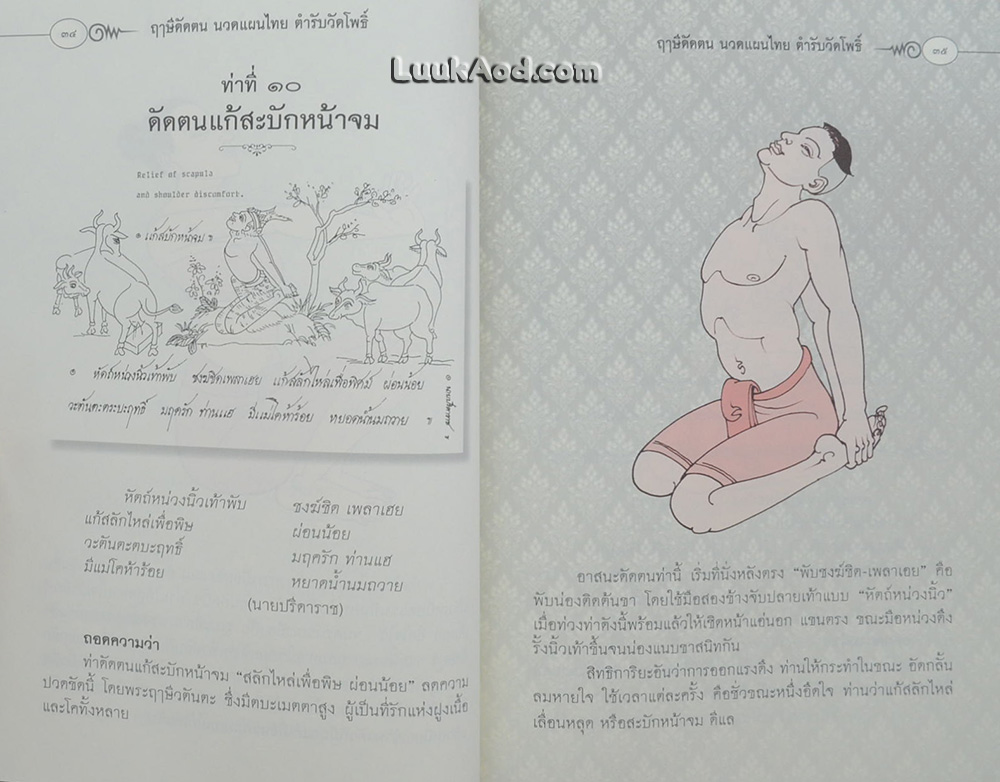 ๓๔
ฤๅษีดัดตน นวดแผนไทย ตำรับวัดโพธิ์
LuukAod.com
ท่าที่ ๑๐
ดัดตนแก้สะบักหน้าจม
Relief of scapula
and shoulder discomfort.
๏ แก้สบักหน้จม ฯ
๏ หัตถ์หน่วงนิ้วเท้าพับ ชงฆ์ชิดเพลาเฮย แก้สลักไหล่เพื่อพิศม์ ผ่อนน้อย
วะตันตะตระบะฤทธิ์ มฤครัก ท่านแฮ มีแม่โคห้าร้อย หยอดน้ำนมถวาย ฯ
หัตถ์หน่วงนิ้วเท้าพับ ชงฆ์ชิด เพลาเฮย
แก้สลักไหล่เพื่อพิษ ผ่อนน้อย
วะตันตะตบะฤทธิ์ มฤครัก ท่านแฮ
มีแม่โคห้าร้อย หยาดน้ำนมถวาย
(นายปรีดาราช)
ถอดความว่า
ท่าดัดตนแก้สะบักหน้าจม “สลักไหล่เพื่อพิษ ผ่อนน้อย” ลดความ
ปวดขัดนี้ โดยพระฤๅษีวตันตะ ซึ่งมีตบะเมตตาสูง ผู้เป็นที่รักแห่งฝูงเนื้อ
และโคทั้งหลาย
ฤๅษีดัดตน นวดแผนไทย ตำรับวัดโพธิ์
๓๕
อาสนะดัดตนท่านี้ เริ่มที่นั่งหลังตรง “พับชงฆ์ชิด-เพลาเฮย” คือ
พับน่องติดต้นขา โดยใช้มือสองข้างจับปลายเท้าแบบ “หัตถ์หน่วงนิ้ว”
เมื่อท่วงท่าดังนี้พร้อมแล้วให้เชิดหน้าแอ่นอก แขนตรง ขณะมือหน่วงดึง
รั้งนิ้วเท้าขึ้นจนน่องแนบขาสนิทกัน
สิทธิการิยะอันว่าการออกแรงดึง ท่านให้กระทำในขณะ อัดกลั้น
ลมหายใจ ใช้เวลาแต่ละครั้ง คือชั่วขณะหนึ่งอึดใจ ท่านว่าแก้สลักไหล่
เลื่อนหลุด หรือสะบักหน้าจม ดีแล